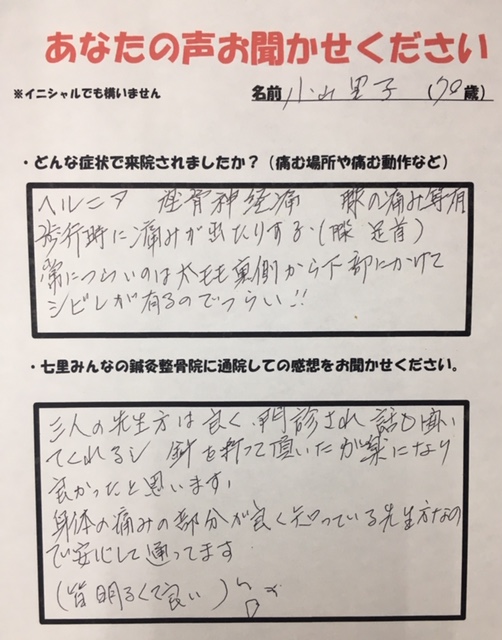 あなたの声お聞かせください
※イニシャルでも構いません 名前 小山里子 (70歳)
・どんな症状で来院されましたか？（痛む場所や痛む動作など）
ヘルニア 座骨神経痛 膝の痛み等有
歩行時に痛みが出たりする、(膝 足首)
常につらいのは太モモ裏側から下部にかけて
シビレが有るのでつらい!!
・七里みんなの鍼灸整骨院に通院しての感想をお聞かせください。
三人の先生方は良く、問診され 話も聞い
てくれるシ 針を打って頂いたが楽になり
良かったと思います、
身体の痛みの部分が良く知っている先生方なの
で安心して通ってます
(皆明るくて良い)